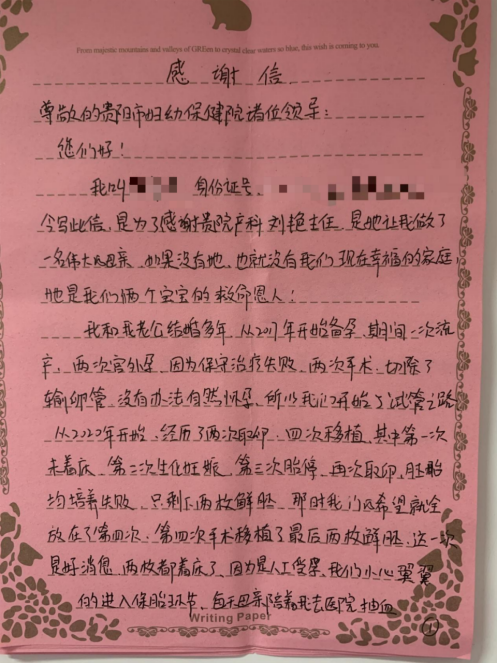 From majestic mountains and valleys of GREen to crystal clear waters so blue, this wish is coming to you.
感谢信
尊敬的贵阳市妇幼保健院诸位领导:
您们好!
我叫 身份证号
今写此信,是为了感谢贵院产科刘艳主任,是她让我做了
一名伟大的母亲,如果没有她,也就没有我们现在幸福的家庭,
她是我们俩个宝宝的救命恩人!
我和我老公结婚多年,从2017年开始备孕,期间一次流
产,两次宫外孕,因为保守治疗失败,两次手术,切除了
输卵管,没有办法自然怀孕,所以我们开始了试管之路
从2020年开始,经历了两次取卵,四次移植,其中第一次
未着床,第二次生化妊娠,第三次胎停,再次取卵,胚胎
均培养失败,只剩下两枚鲜胚,那时我们的希望就全
放在了第四次,第四次手术移植了最后两枚鲜胚,这一次
是好消息,两枚都着床了,因为是人工受孕,我们小心翼翼
的进入保胎环节,每天母亲陪着我去医院抽血
Writing Paper
①